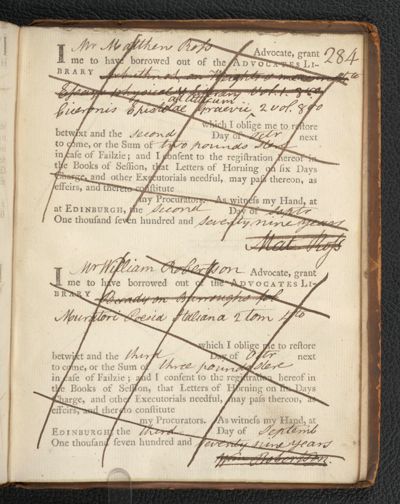 284
I Mr Matthew Ross Advocate, grant
me to have borrowed out of the ADVOCATES LI-
BRARY Arbuthnot on Weights & measures 4to
Essays physical & literary Vol. 1. 8vo
Ciceronis Epistolae ad Atticum Graevii 2 vol. 8vo
which I oblige me to restore
betwixt and the second Day of Octr next
to come, or the Sum of two pounds Sterl
in case of Failzie; and I consent to the registration hereof in
the Books of Session, that Letters of Horning on six Days
Charge, and other Executorials needful, may pass thereon, as
effeirs, and thereto constitute
my Procurators. As witness my Hand,
at EDINBURGH, the Second Day of Septr
One thousand seven hundred and seventy nine years
Mat. Ross
I Mr William Robertson Advocate, grant
me to have borrowed out of the ADVOCATES LI-
BRARY Burroughs fol
Muratori Poesia Italiana 2 tom 4to
which I oblige me to restore
betwixt and the third Day of Octr next
to come, or the Sum of three pounds Ster
in case of Failzie; and I consent to the registration hereof in
the Books of Session, that Letters of Horning on six Days
Charge, and other Executorials needful, may pass thereon, as
effeirs, and thereto constitute
my Procurators. As witness my Hand, at
EDINBURGH the third Day of Septemb
One thousand seven hundred and seventy nine years
Wm Robertson